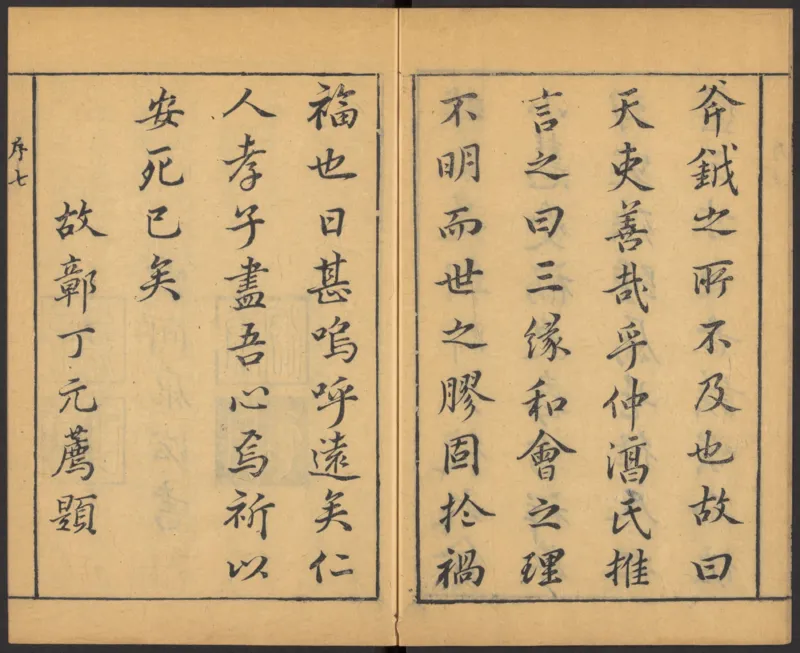 斧鉞之所不及也故曰
天吏善哉乎仲濄民推
言之曰三緣和會之理
不明而世之膠固於禍
福也日甚嗚呼遠矣仁
人孝子盡吾心焉祈以
安死已矣
故鄣丁元薦題
序七